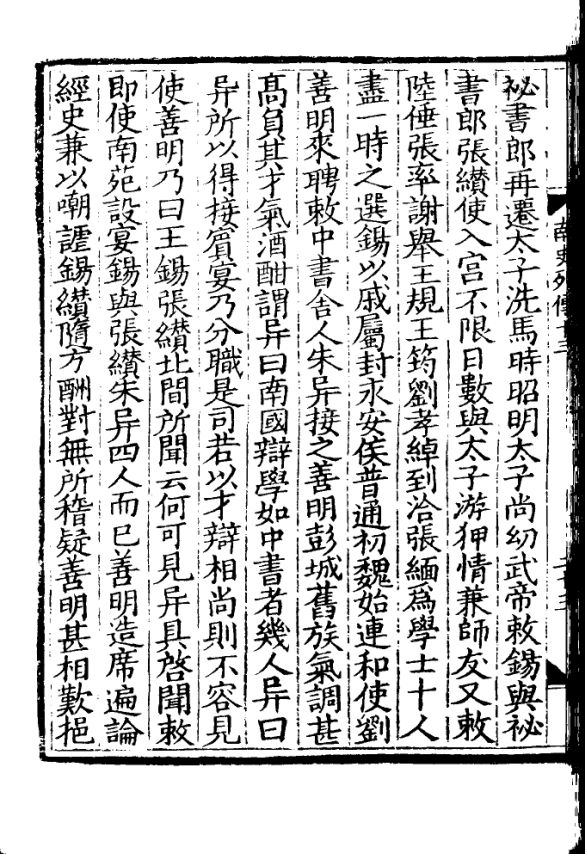 祕書郎再遷太子洗馬時昭明太子尚㓜武帝敕錫與祕
書郎張纘使入宫不限日數與太子游狎情兼師友又敕
陸倕張率謝舉王規王筠劉孝綽到洽張緬爲學士十人
盡一時之選錫以戚屬封永安侯普通初魏始連和使劉
善明來聘敕中書舍人朱异接之善明彭城舊族氣調甚
髙負其才氣酒酣謂异曰南國辯學如中書者幾人异曰
异所以得接賓宴乃分職是司若以才辯相尚則不容見
使善明乃曰王錫張纘北間所聞云何可見异具啓聞敕
即使南苑設宴錫與張纘朱异四人而已善明造席遍論
經史兼以嘲謔錫纘隨方酬對無所稽疑善明甚相歎挹